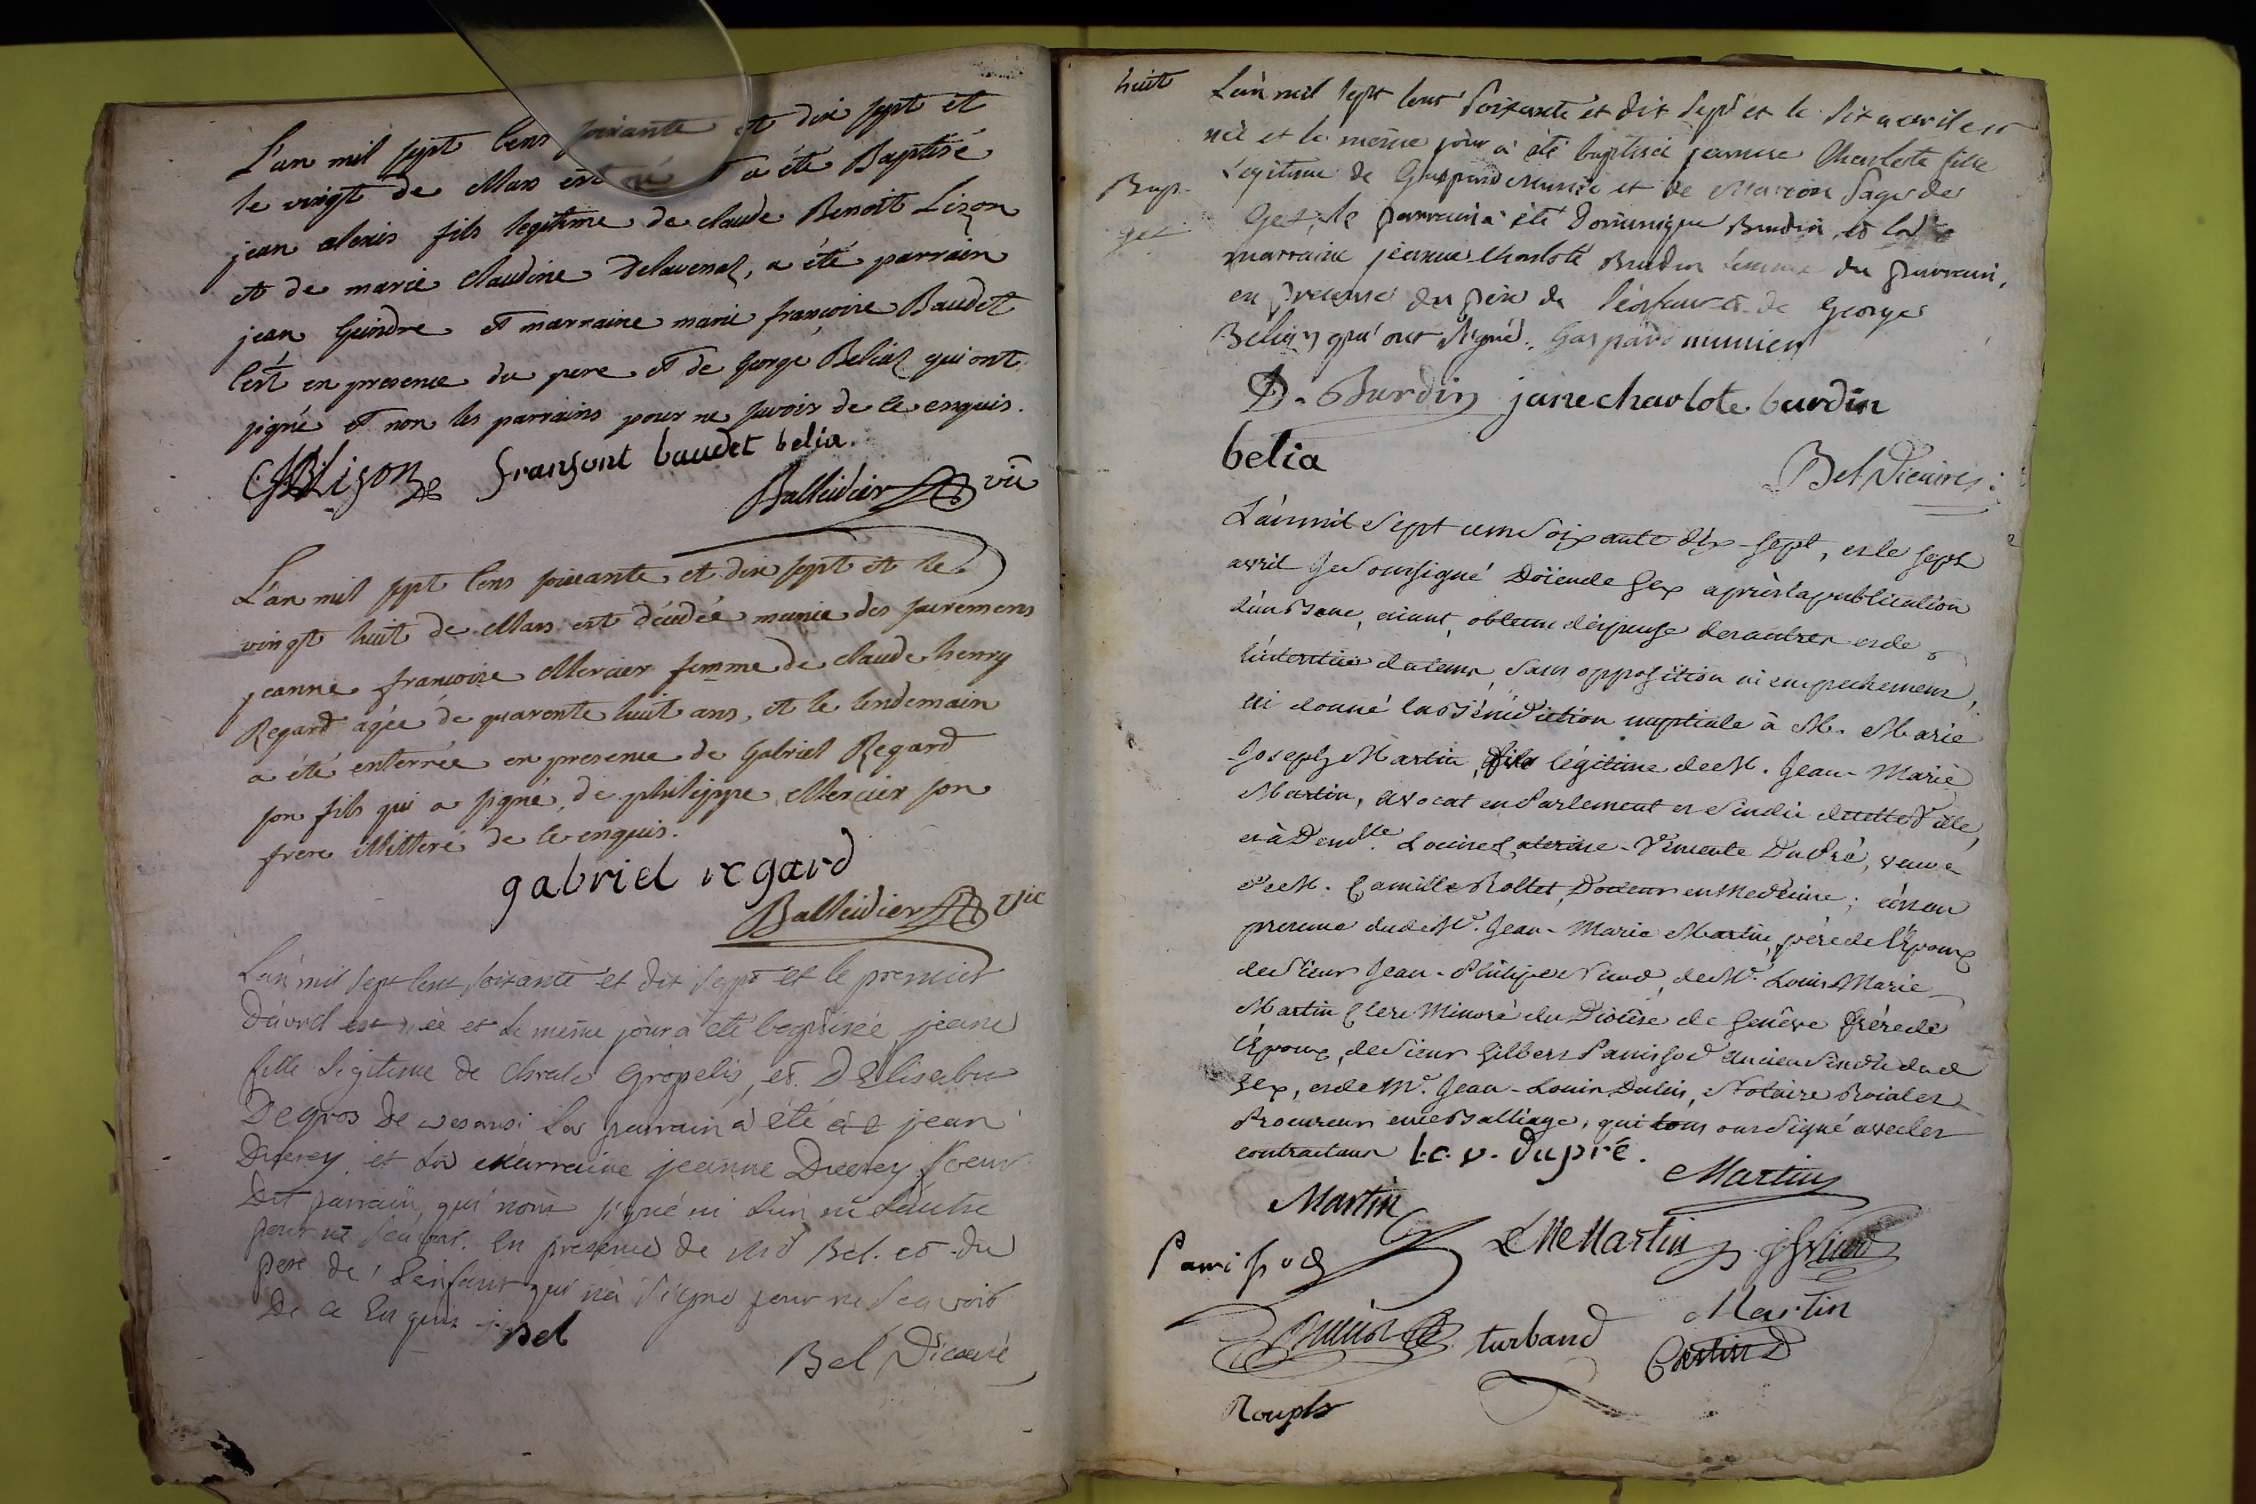 L'an mil sept cens soixante et dix sept et
le vingt de Mars est né et a été Baptisé
jean alexis fils legitime de claude Benoit Lizon
et de marie claudine Delavenaz, a été parrain
jean Geindre et marraine marie françoise Baudet
C'est en presence du pere et de George Beliaz qui ont
signé et non les parrains pour ne savoir de ce enquis.
CBLizon fransont baudet belia.
Balleidier vic
L'an mil sept cens soixante et dix sept et le
vingt huit de Mars est décédée munie des sacremens
jeanne françoise Mercier femme de claude henry
Regard agée de quarente huit ans, et le lendemain
a été enterrée en presence de Gabriel Regard
son fils qui a signé, de philippe Mercier son
frere illitteré de ce enquis.
gabriel regard
Balleidier Vic
L'an mil sept cent soixante et dix sept et le premier
D'avril est née et le même jour a été baptisée jeane
fille Legitime de Gropelis, et D'Elisabet
Degros de le parrain a été jean
Ducrey et La Marraine jeanne Ducrey soeur
Dit parrain, qui n'ont signé ni L'un ni L'autre
pour ne scavoir. En presence de Bel. et du
pere de L'enfant qui n'a signé pour ne scavoir
De ce Enquis. Bel
Bel Vicaire
huit
L'an mil sept cent soixante et dix sept et le six avril est
née et le même jour a été baptisée jeanne Charlote fille
Bap.
Legitime de Gaspard Munié et de Marion Sage de
gex
Gex, le parrain a été Dominique Burdin, et la
marraine jeanne Charlote Burdin femme du parrain,
en presence du père de l'enfant et de George
Beliaz qui ont signé. Gaspard munier
D. Burdin jane charlote burdin
belia
Bel Vicaire.
L'an mil sept cent soixante dix-sept, et le sept
avril Je soussigné Doïen de Gex après la publication
d'un Banc, aiant obtenu dispense des autres et de
l'interstice du tems, sans opposition ni empechement,
ai donné la Bénédiction nuptiale à M. Marie
Joseph Martin, fils légitime de M. Jean-Marie
Martin, avocat en Parlement et Sindic de cette Ville,
et à Dem.lle Louise Caterine-Vincente Dupré, veuve
de M. Camille Rollet, Docteur en Medecine; c'est en
presence dud. M.r Jean-Marie Martin, père de l'Epoux
de Sieur Jean-Philipe Viard, de M.r Louis Marie
Martin Clerc Minoré du Diocèse de Genève frère de
l'Epoux, de Sieur Gilbert Panissod ancien Sindic dud.
Gex, et de M.e Jean-Louis Dulin, Notaire Roial et
Procureur en ce Balliage, qui tous ont Signé avec les
contractans L. C. v. Dupré.
Martin Martin
Panissod LMeMartin
Martin
turband
Roupls